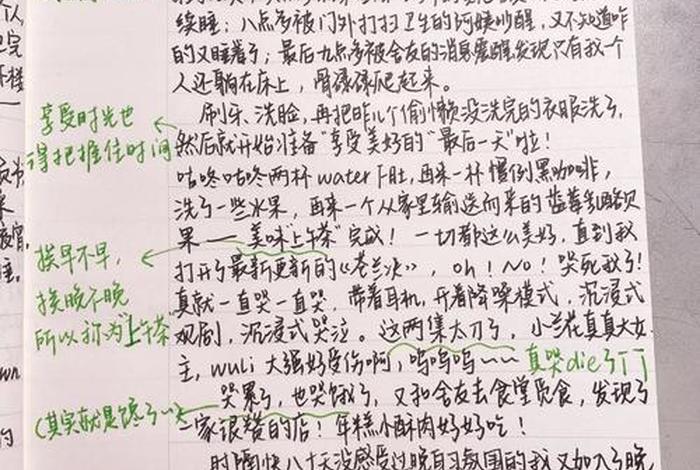 续睡；八点多被门外打扫卫生的阿姨吵醒，又不知道咋
的又睡着了；最后九点多被舍友的消息震醒发现只有我一个
人还躺在床上，骨碌碌爬起来。
刷牙、洗脸，再把昨儿个偷懒没洗完的衣服洗了，
然后就开始准备“享受美好的“最后一天”啦！
享受时光也
得把握住时间
咕咚咕咚两杯water下肚，再来一杯惯例黑咖啡，
洗了一些水果，再来一个从家里输送而来的蓝莓乳酪贝
果——美味“上午茶”完成！一切都这么美好，直到我
挨早不早，
挨晚不晚
所以称为“上午茶
打开了最新更新的《苍兰诀》，oh！No！哭死我了！
真就一直哭一直哭，带着耳机，开着降噪模式，沉浸式
观剧，沉浸式哭泣。这两集太刀了，小兰花真真大女
主，wuli大强好受伤啊，呜呜呜~~~ 真哭die了TT
哭累了，也哭饿了，又和舍友去食堂觅食，发现了
(其实就是馋了~
一家很赞的店！年糕小酥肉好好吃！
时隔快八十天没感受过晚自习氛围的我又加入了晚